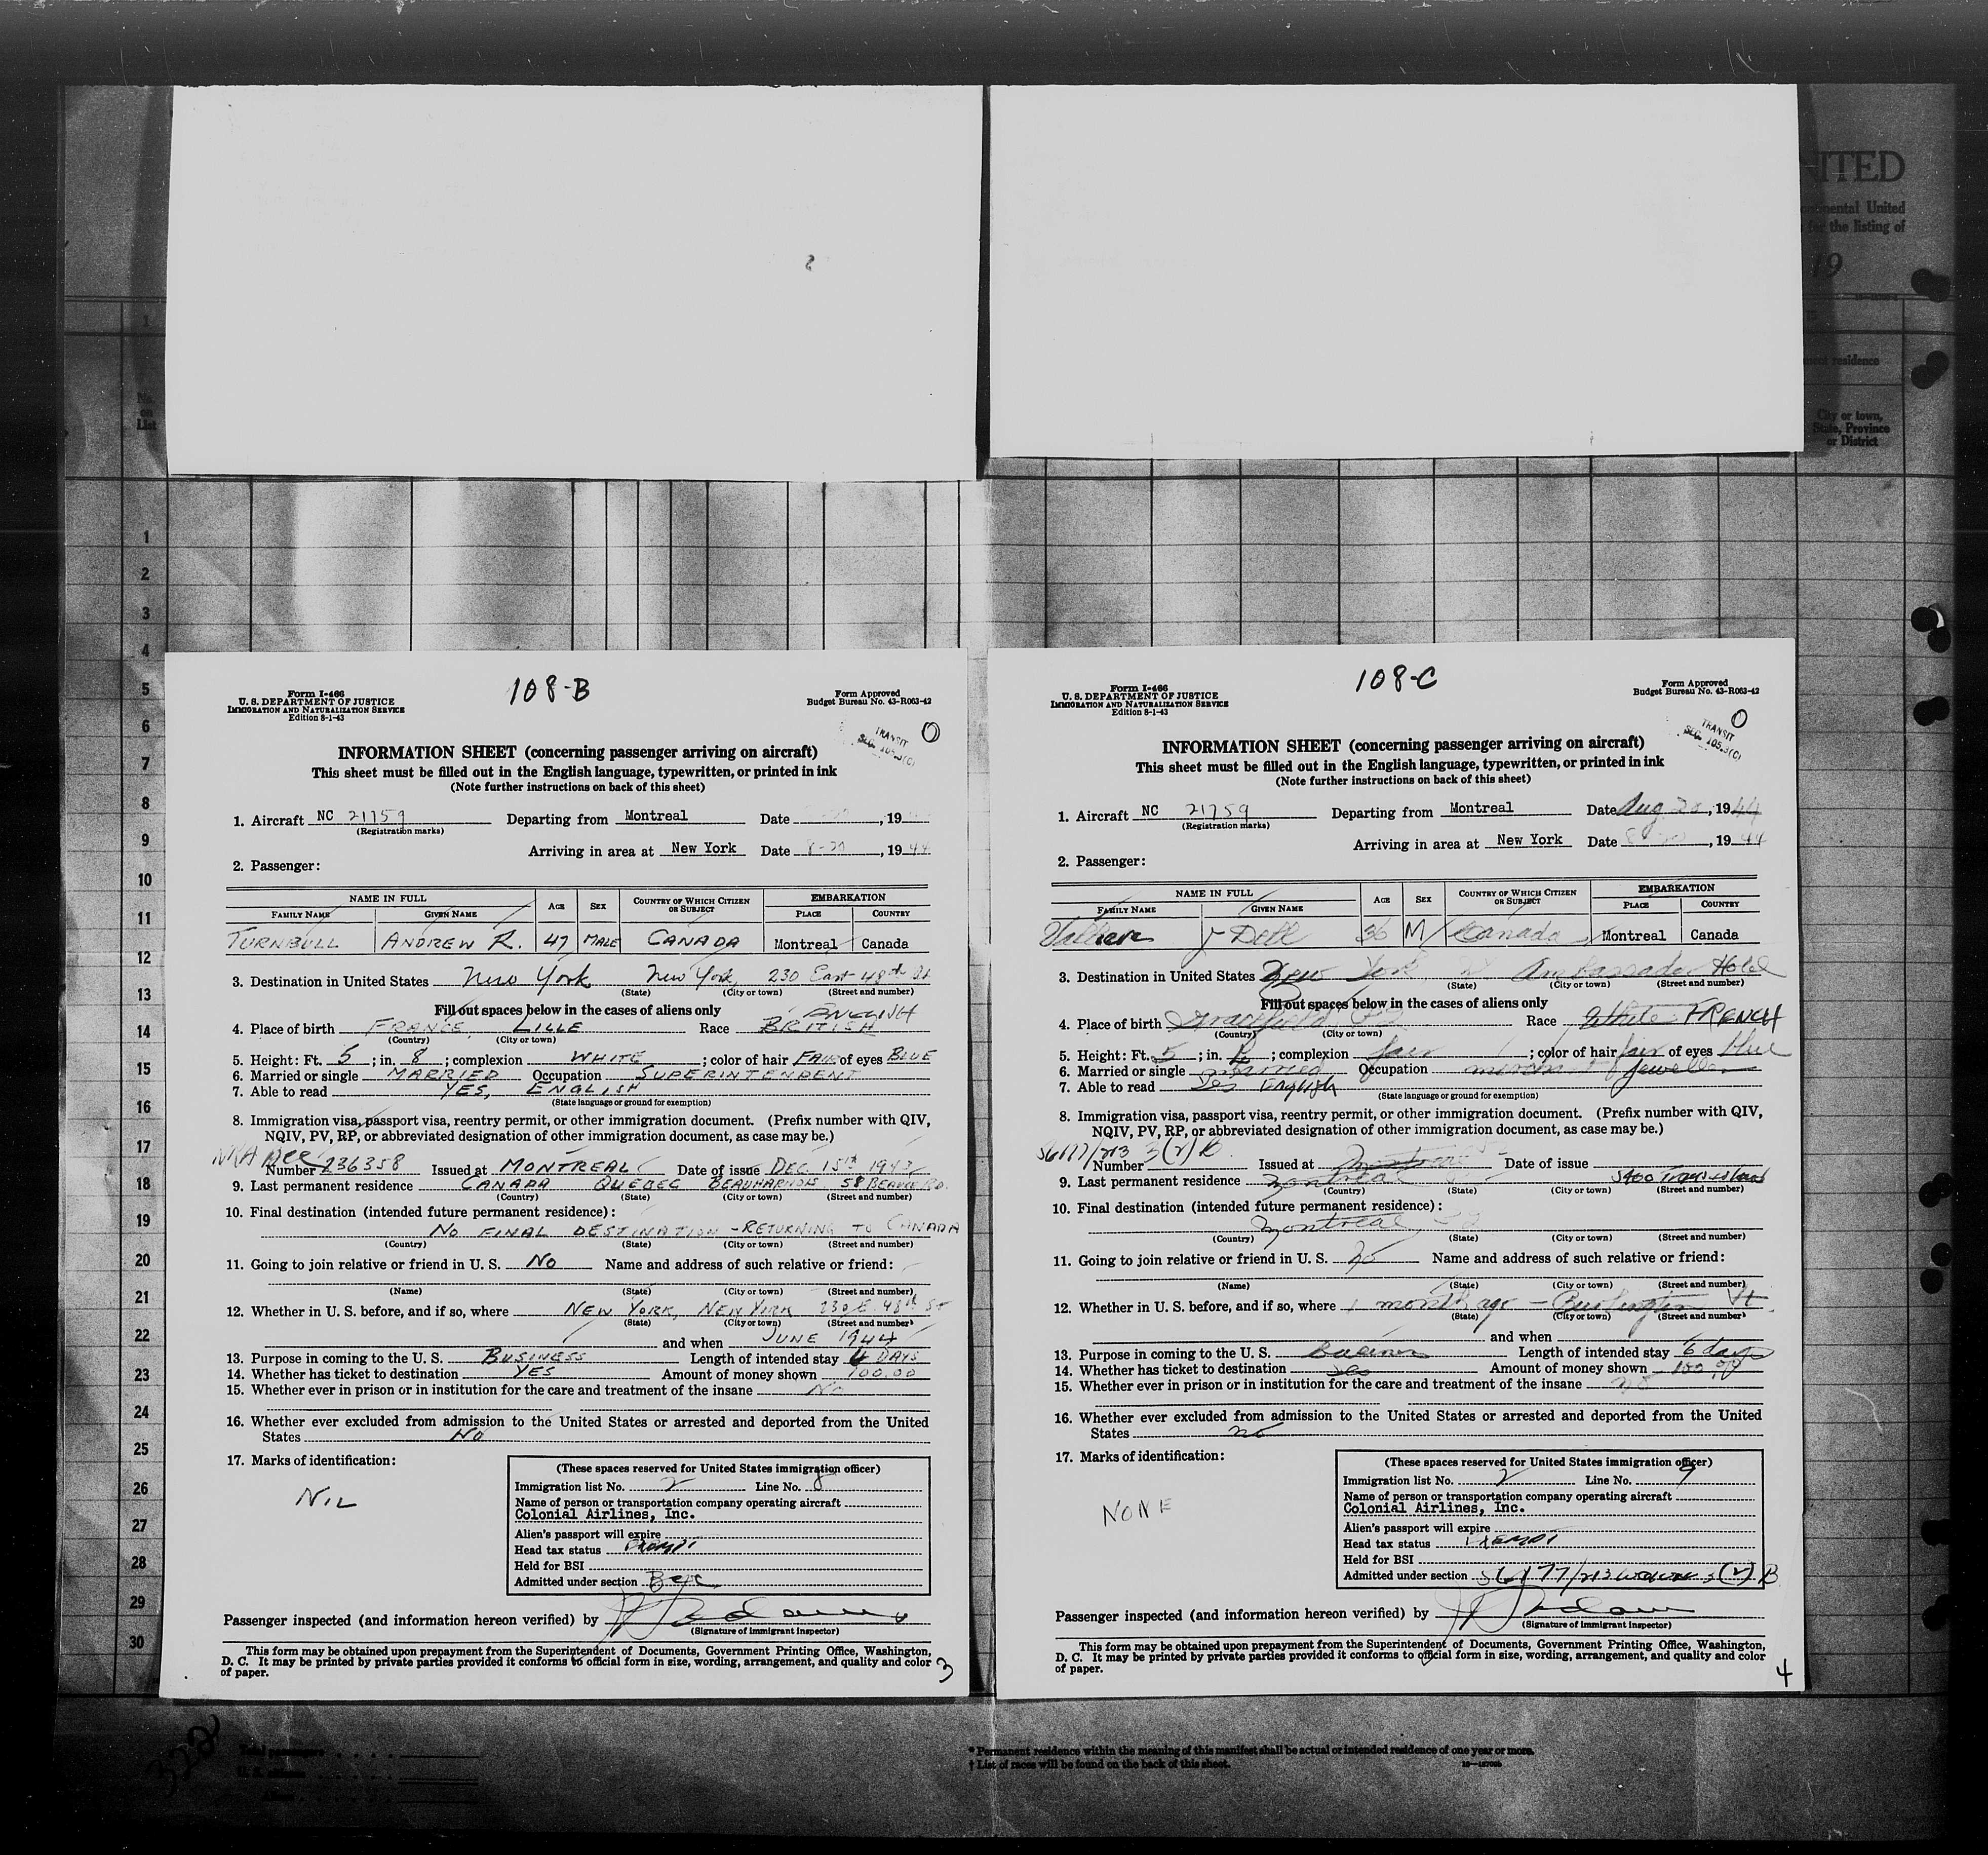 NITED
mental United
for the listing of
19
1
ment residence
No.
on
List
City or town,
State, Province
or District
1
2
3
4
5
6
7
8
9
10
11
12
13
14
15
16
17
18
19
20
21
22
23
24
25
26
27
28
29
30
108-B
Form I-466
U. S. DEPARTMENT OF JUSTICE
IMMIGRATION AND NATURALIZATION SERVICE
Edition 8-1-43
Form Approved
Budget Bureau No. 43-R063-42
TRANSIT
SEC. 105.3(C)
INFORMATION SHEET (concerning passenger arriving on aircraft)
This sheet must be filled out in the English language, typewritten, or printed in ink
(Note further instructions on back of this sheet)
1. Aircraft NC 21759 Departing from Montreal Date , 19
(Registration marks)
Arriving in area at New York Date 8-20, 1944
2. Passenger:
NAME IN FULL AGE SEX COUNTRY OF WHICH CITIZEN OR SUBJECT EMBARKATION
FAMILY NAME GIVEN NAME PLACE COUNTRY
TURNBULL ANDREW R. 47 MALE CANADA Montreal Canada
3. Destination in United States New York New York, 230 East 48th St
(State) (City or town) (Street and number)
Fill out spaces below in the cases of aliens only
ENGLISH
4. Place of birth FRANCE LILLE Race BRITISH
(Country) (City or town)
5. Height: Ft. 5; in. 8; complexion WHITE; color of hair FAIR of eyes BLUE
6. Married or single MARRIED Occupation SUPERINTENDENT
7. Able to read YES, ENGLISH
(State language or ground for exemption)
8. Immigration visa, passport visa, reentry permit, or other immigration document. (Prefix number with QIV,
NQIV, PV, RP, or abbreviated designation of other immigration document, as case may be.)
Number 236358 Issued at MONTREAL Date of issue DEC 15th 1943
9. Last permanent residence CANADA QUEBEC BEAUHARNOIS 58
(Country) (State) (City or town) (Street and number)
10. Final destination (intended future permanent residence):
NO FINAL DESTINATION - RETURNING TO CANADA
(Country) (State) (City or town) (Street and number)
11. Going to join relative or friend in U. S. NO Name and address of such relative or friend:
(Name) (State) (City or town) (Street and number)
12. Whether in U. S. before, and if so, where NEW YORK, NEW YORK 230 E. 48th ST
(State) (City or town) (Street and number)
and when JUNE 1944
13. Purpose in coming to the U. S. BUSINESS Length of intended stay DAYS
14. Whether has ticket to destination YES Amount of money shown 100.00
15. Whether ever in prison or in institution for the care and treatment of the insane NO
16. Whether ever excluded from admission to the United States or arrested and deported from the United
States NO
17. Marks of identification:
NIL
(These spaces reserved for United States immigration officer)
Immigration list No. 2 Line No. 8
Name of person or transportation company operating aircraft
Colonial Airlines, Inc.
Alien's passport will expire
Head tax status EXEMPT
Held for BSI
Admitted under section
Passenger inspected (and information hereon verified) by
(Signature of immigrant inspector)
This form may be obtained upon prepayment from the Superintendent of Documents, Government Printing Office, Washington,
D. C. It may be printed by private parties provided it conforms to official form in size, wording, arrangement, and quality and color
of paper.
3
108-C
Form I-466
U. S. DEPARTMENT OF JUSTICE
IMMIGRATION AND NATURALIZATION SERVICE
Edition 8-1-43
Form Approved
Budget Bureau No. 43-R063-42
TRANSIT
SEC. 105.3(C)
INFORMATION SHEET (concerning passenger arriving on aircraft)
This sheet must be filled out in the English language, typewritten, or printed in ink
(Note further instructions on back of this sheet)
1. Aircraft NC 21759 Departing from Montreal Date Aug 20, 1944
(Registration marks)
Arriving in area at New York Date 8-20, 1944
2. Passenger:
NAME IN FULL AGE SEX COUNTRY OF WHICH CITIZEN OR SUBJECT EMBARKATION
FAMILY NAME GIVEN NAME PLACE COUNTRY
36 M Canada Montreal Canada
3. Destination in United States New York Ambassador Hotel
(State) (City or town) (Street and number)
Fill out spaces below in the cases of aliens only
4. Place of birth Gracefield Race White FRENCH
(Country) (City or town)
5. Height: Ft. 5; in. ; complexion fair; color of hair fair of eyes blue
6. Married or single married Occupation merchant jeweller
7. Able to read Yes English
(State language or ground for exemption)
8. Immigration visa, passport visa, reentry permit, or other immigration document. (Prefix number with QIV,
NQIV, PV, RP, or abbreviated designation of other immigration document, as case may be.)
56177/213 3(2)B
Number Issued at Montreal Date of issue
9. Last permanent residence Montreal 5400
(Country) (State) (City or town) (Street and number)
10. Final destination (intended future permanent residence):
Montreal
(Country) (State) (City or town) (Street and number)
11. Going to join relative or friend in U. S. no Name and address of such relative or friend:
(Name) (State) (City or town) (Street and number)
12. Whether in U. S. before, and if so, where 1 month ago - Burlington Vt.
(State) (City or town) (Street and number)
and when
13. Purpose in coming to the U. S. Business Length of intended stay 6 days
14. Whether has ticket to destination yes Amount of money shown 100.00
15. Whether ever in prison or in institution for the care and treatment of the insane no
16. Whether ever excluded from admission to the United States or arrested and deported from the United
States no
17. Marks of identification:
NONE
(These spaces reserved for United States immigration officer)
Immigration list No. 2 Line No. 9
Name of person or transportation company operating aircraft
Colonial Airlines, Inc.
Alien's passport will expire
Head tax status EXEMPT
Held for BSI
Admitted under section 56177/213 3(2)B
Passenger inspected (and information hereon verified) by
(Signature of immigrant inspector)
This form may be obtained upon prepayment from the Superintendent of Documents, Government Printing Office, Washington,
D. C. It may be printed by private parties provided it conforms to official form in size, wording, arrangement, and quality and color
of paper.
4
322
Total passengers
U. S. citizens
Aliens
* Permanent residence within the meaning of this manifest shall be actual or intended residence of one year or more.
† List of races will be found on the back of this sheet.